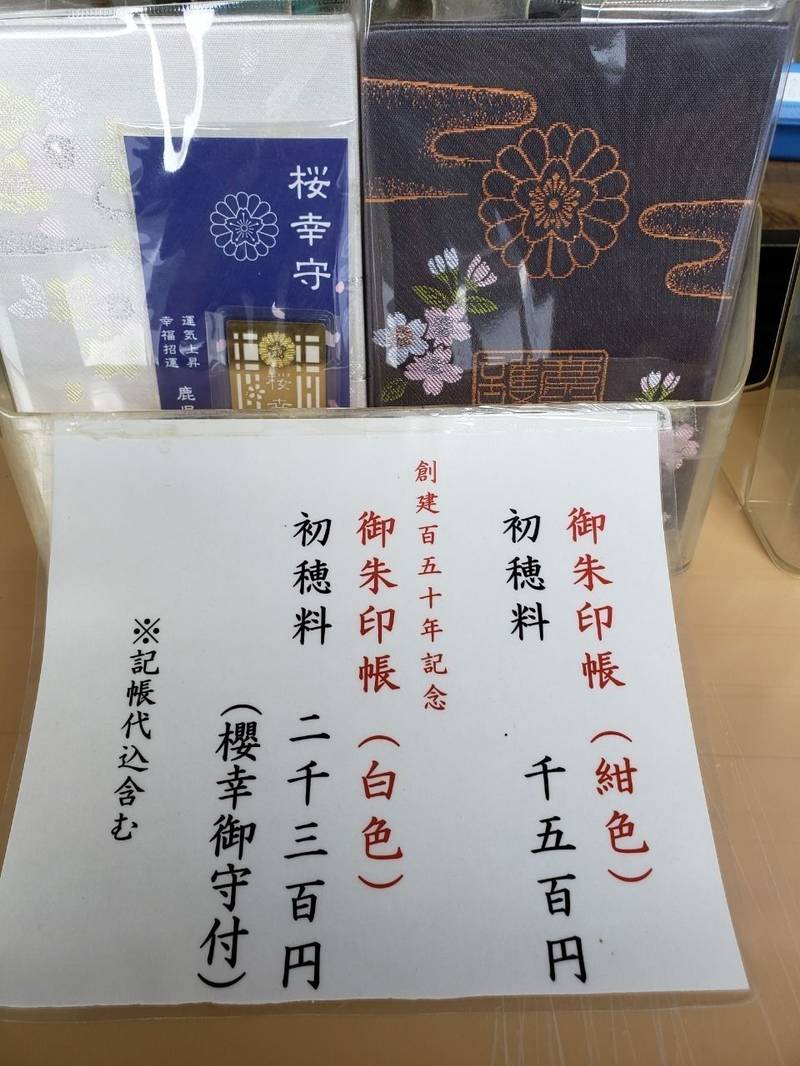 桜幸守
運気上昇
幸福招運
鹿
桜幸
御朱印帳（紺色）
初穂料　千五百円
創建百五十年記念
御朱印帳（白色）
初穂料　二千三百円
（櫻幸御守付）
※記帳代込含む